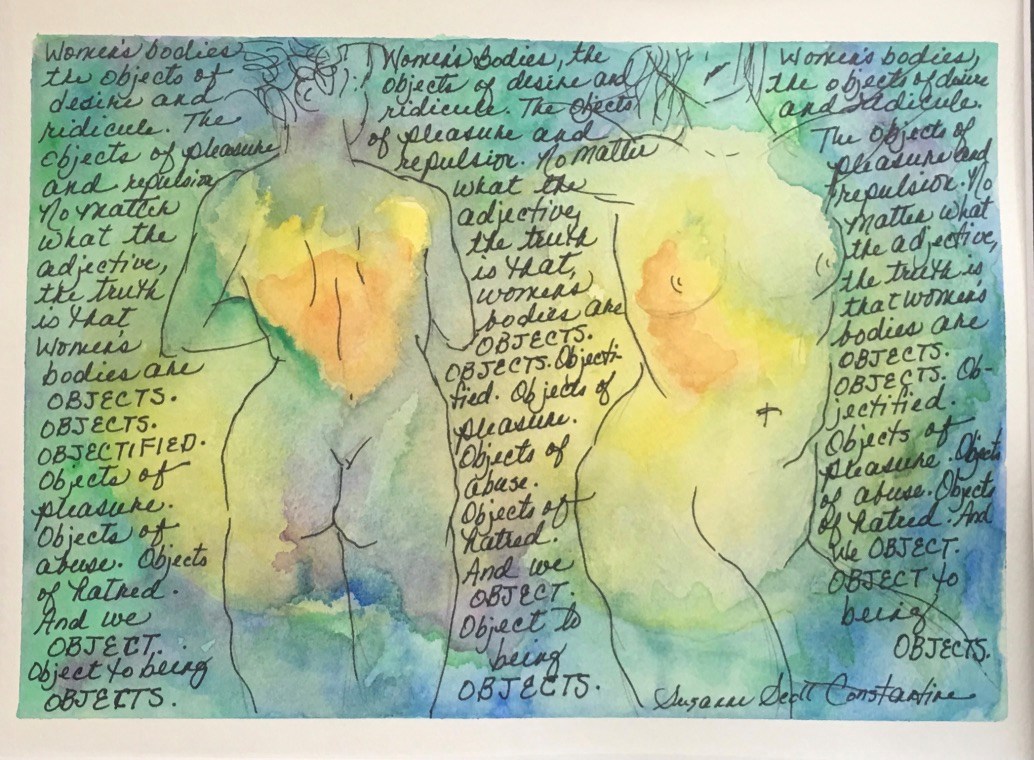 Women's bodies
the objects of
desire and
ridicule. The
objects of pleasure
and repulsion
No matter
what the
adjective,
the truth
is that
Women's
bodies are
OBJECTS.
OBJECTS.
OBJECTIFIED.
Objects of
pleasure.
Objects of
abuse. Objects
of hatred.
And we
OBJECT.
Object to being
OBJECTS.
Women's Bodies, the
objects of desire and
ridicule. The objects
of pleasure and
repulsion. No matter
what the
adjective,
the truth
is that,
womens
bodies are
OBJECTS.
OBJECTS. Objecti-
fied. Objects of
pleasure.
Objects of
abuse.
Objects of
hatred.
And we
OBJECT.
Object to
being
OBJECTS.
Women's bodies,
the objects of desire
and ridicule.
The objects of
pleasure and
repulsion. No
matter what
the adjective,
the truth is
that women's
bodies are
OBJECTS.
OBJECTS. Ob-
jectified.
Objects of
pleasure. Objects
of abuse. Objects
of hatred. And
We OBJECT.
OBJECT to
being
OBJECTS.
Suzanne Scott Constantine